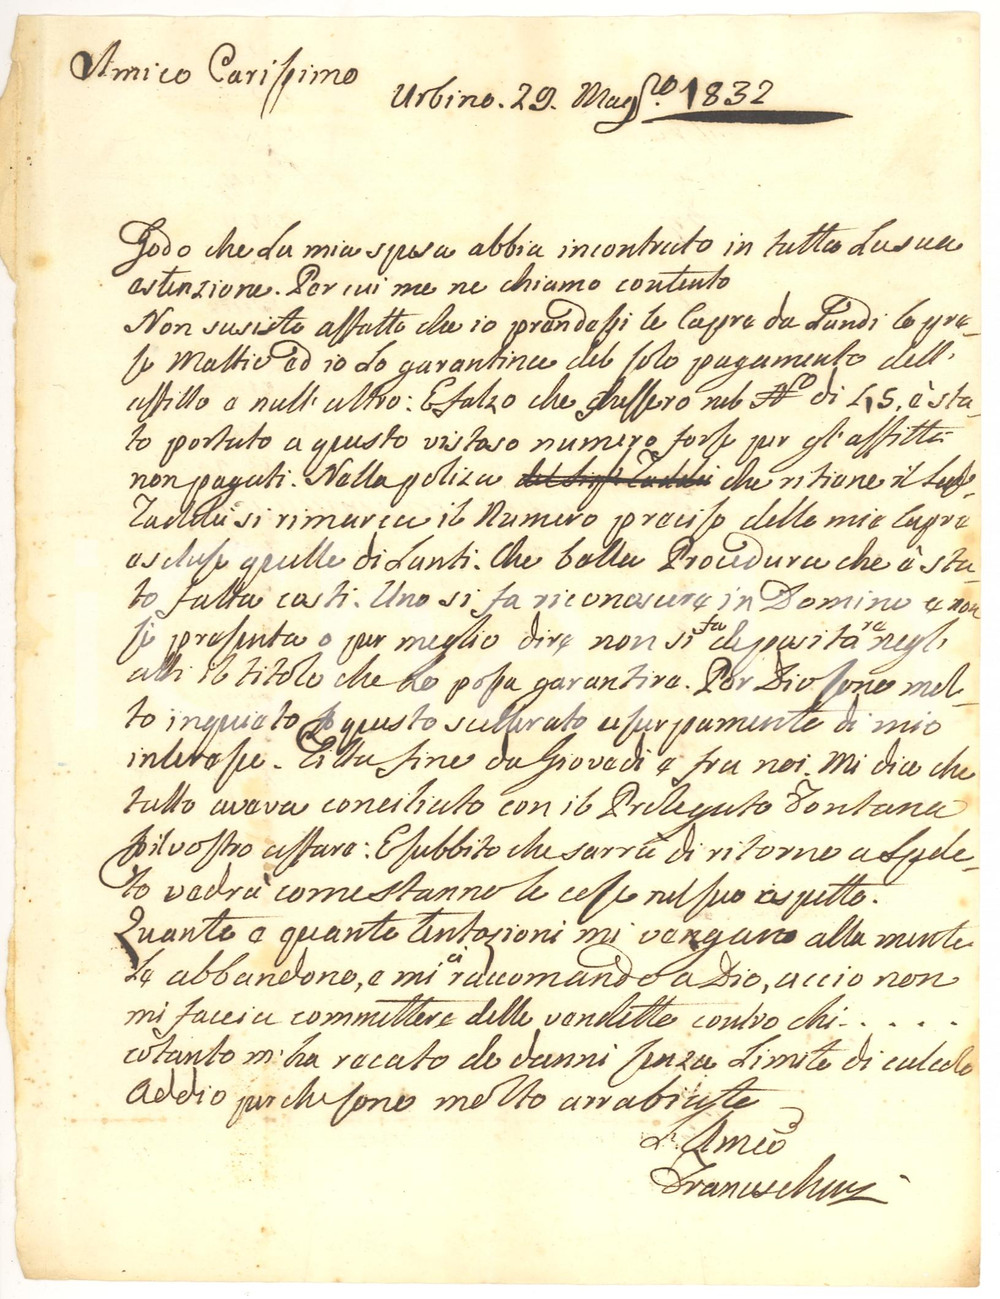 Amico Carissimo
Urbino. 29. Mag.º 1832
Godo che la mia sposa abbia incontrato in tutta la sua
estenzione. Per cui me ne chiamo contento
Non susiste affatto che io prendessi le Capre da Landi le pre-
se Mattio ed io lo garantince del solo pagamento dell'
affitto e null'altro: E falzo che fussero nel Nº di 45, è sta-
to portato a questo vistoso numero forse per gl'affitti
non pagati. Nella poliza che ritiene il
Taddei si rimarca il Numero preciso delle mie Capre
escluse quelle di Lanti. Che bella Procedura che è sta-
to fatta costi. Uno si fa riconoscere in Domino e non
si presenta o per meglio dire non si fa depositare negli
atti il titolo che lo possa garantire. Per Dio sono mol-
to inquieto p questo scellerato usurpamente di mio
interesse. Alla fine da Giovedi e fra noi. Mi dice che
tutto aveva conciliato con il Prelegato Fontana
p il vostro affare: E subbito che sarrà di ritorno a Spole-
to vedrà come stanno le cose nel suo aspetto.
Quante e quante tentazioni mi vengano alla mente
Le abbandono, e mi raccomando a Dio, accio non
mi faccia committere delle vendette contro chi. . . . .
cotanto m'ha recato de danni senza limite di calcolo
Addio perche sono molto arrabiate
L'Amico
Franceschini